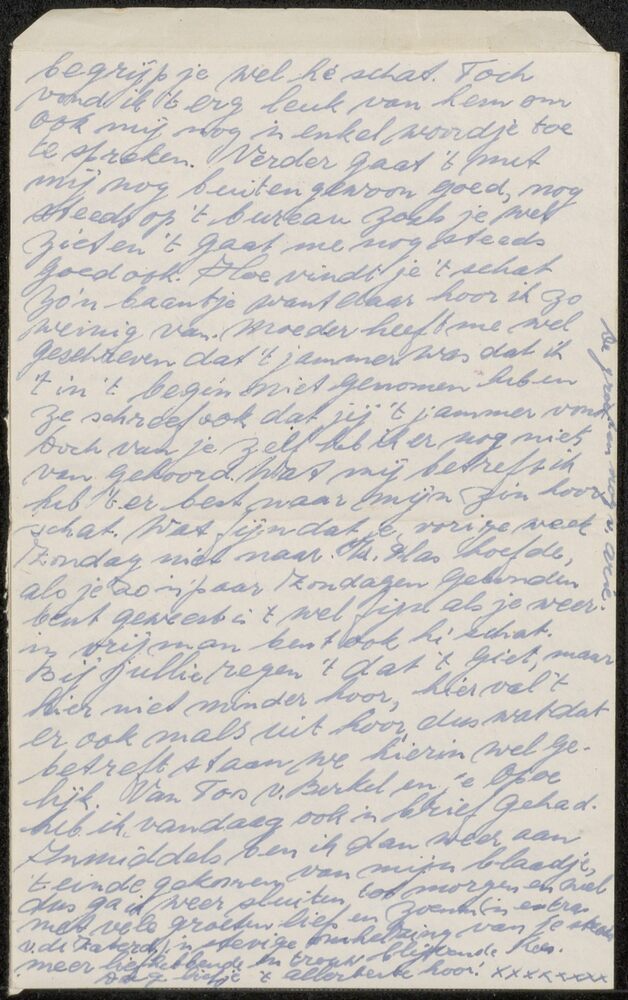 begrijp je wel hè schat. Toch
vond ik 't erg leuk van hem om
ook mij nog 'n enkel woordje toe
te spreken. Verder gaat 't met
mij nog buitengewoon goed, nog
steeds op 't bureau zoals je wel
ziet en 't gaat me nog steeds
goed ook. Hoe vindt je 't schat
zo'n baantje want daar hoor ik zo
weinig van. Moeder heeft me wel
geschreven dat 't jammer was dat ik
't in 't begin niet genomen heb en
ze schreef ook dat jij 't jammer vond
doch van je zelf heb ik er nog niets
van gehoord. Wat mij betreft ik
heb 't er best naar mijn zin hoor
schat. Wat fijn dat je, vorige week
Zondag niet naar de hoefde,
als je zo 'n paar Zondagen gebonden
bent geweest is 't wel fijn als je weer
'n vrij man bent ook hè schat.
Bij jullie regen 't dat 't giet, maar
hier niet minder hoor, hier valt
er ook mals uit hoor, dus wat dat
betreft staan we hierin wel ge-
lijk. Van Tos v. Berkel en 'e Opoe
heb ik vandaag ook 'n brief gehad.
Inmiddels ben ik dan weer aan
't einde gekomen van mijn blaadje,
dus ga ik weer sluiten, tot morgen en veel
met vele groeten lief en zoentjes en extra
v.d. Zaterdag 'n stevige omhelzing van je steeds
meer liefhebbende en trouw blijvende Kees.
Dag 't allerbeste hoor! xxxxxxxx
De groeten nog v.